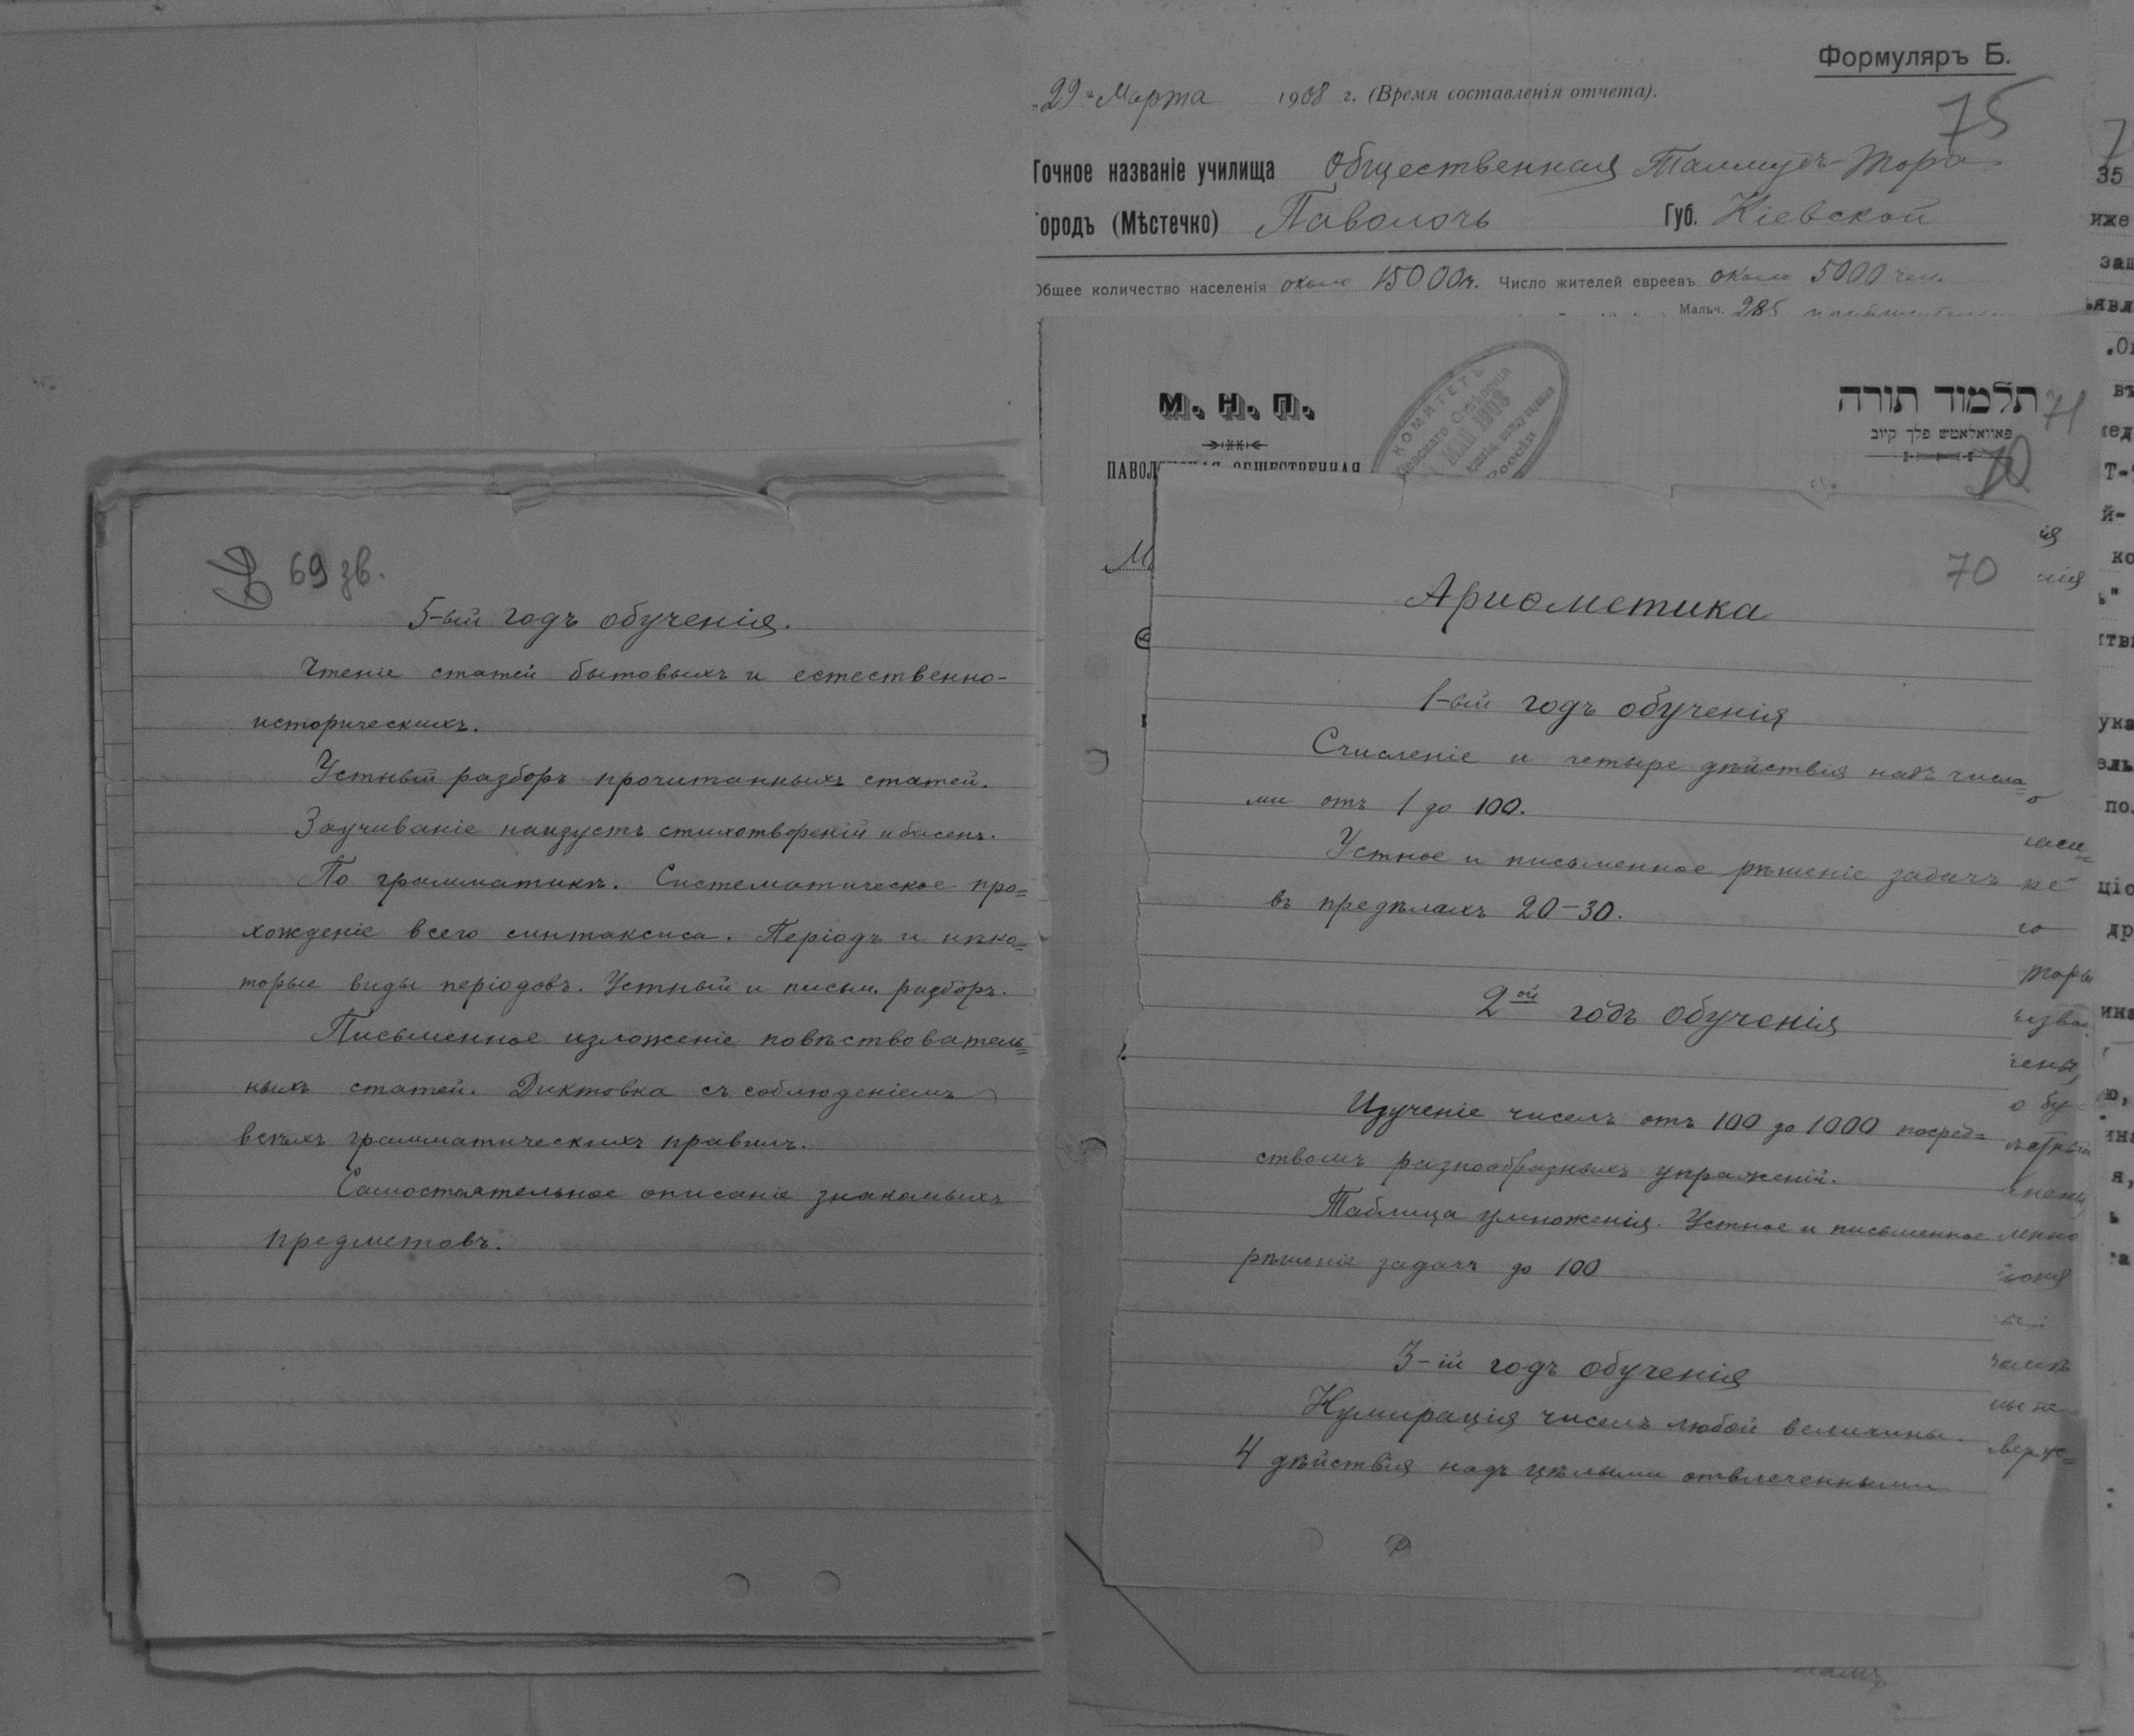 69 69 зв.
5-ый годъ обученія.
Чтеніе статей бытовыхъ и естественно-
историческихъ.
Устный разборъ прочитанныхъ статей.
Заучиваніе наизусть стихотвореній и басенъ.
По грамматикѣ. Систематическое про=
хожденіе всего синтаксиса. Періодъ и нѣко=
торые виды періодовъ. Устный и письм. разборъ.
Письменное изложеніе повѣствователь=
ныхъ статей. Диктовка съ соблюденіемъ
всѣхъ грамматическихъ правилъ.
Самостоятельное описаніе знакомыхъ
предметовъ.
Формуляръ Б.
"22" Марта 1908 г. (Время составленія отчета).
75
Точное названіе училища Общественная Талмудъ-Тора
Городъ (Мѣстечко) Паволочь Губ. Кіевской
Общее количество населенія около 15000 ч. Число жителей евреевъ около 5000 чел.
Мальч. 285
М. Н. П.
תלמוד תורה
71
פאוואלאטש פלך קיוב
70
ПАВОЛОЧСКАЯ ОБЩЕСТВЕННАЯ
КОМИТЕТЪ
1908
Россіи
70
Ариѳметика
1-ый годъ обученія
Счисленіе и четыре дѣйствія надъ числа=
ми отъ 1 до 100.
Устное и письменное рѣшеніе задачъ
въ предѣлахъ 20-30.
2ой годъ обученія
Изученіе чиселъ отъ 100 до 1000 посред=
ствомъ разнообразныхъ упраженій.
Таблица умноженія. Устное и письменное
рѣшеніе задачъ до 100
3-ій годъ обученія
Нумирація чиселъ любой величины.
4 дѣйствія надъ цѣлыми отвлеченными